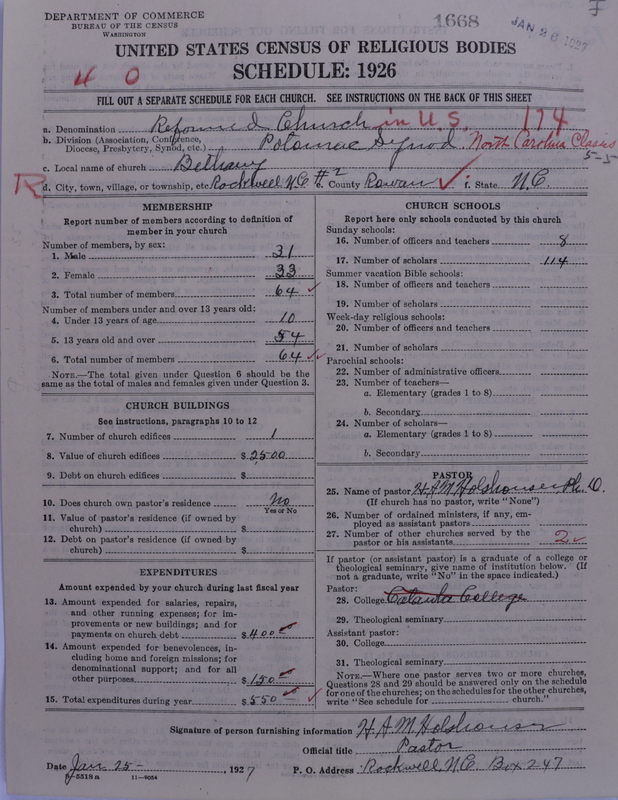 DEPARTMENT OF COMMERCE
BUREAU OF THE CENSUS
WASHINGTON
1668
JAN 26 1927
UNITED STATES CENSUS OF RELIGIOUS BODIES
4 0
SCHEDULE: 1926
FILL OUT A SEPARATE SCHEDULE FOR EACH CHURCH. SEE INSTRUCTIONS ON THE BACK OF THIS SHEET
a. Denomination Reformed Church in U.S. 174
b. Division (Association, Conference, Diocese, Presbytery, Synod, etc.) Potomac Synod North Carolina Classis
5-5
c. Local name of church Bethany
R d. City, town, village, or township, etc. Rockwell N.C #2 e. County Rowan f. State N.C.
MEMBERSHIP
Report number of members according to definition of
member in your church
Number of members, by sex:
1. Male 31
2. Female 33
3. Total number of members 64
Number of members under and over 13 years old:
4. Under 13 years of age 10
5. 13 years old and over 54
6. Total number of members 64
NOTE.—The total given under Question 6 should be
same as the total of males and females given under Question 3.
CHURCH BUILDINGS
See instructions, paragraphs 10 to 12
7. Number of church edifices 1
8. Value of church edifices $ 2500
9. Debt on church edifices $
10. Does church own pastor's residence No
Yes or No
11. Value of pastor's residence (if owned by
church) $
12. Debt on pastor's residence (if owned by
church) $
EXPENDITURES
Amount expended by your church during last fiscal year
13. Amount expended for salaries, repairs,
and other running expenses; for im-
provements or new buildings; and for
payments on church debt $ 400
14. Amount expended for benevolences, in-
cluding home and foreign missions; for
denominational support; and for all
other purposes $ 150
15. Total expenditures during year $ 550
CHURCH SCHOOLS
Report here only schools conducted by this church
Sunday schools:
16. Number of officers and teachers 8
17. Number of scholars 114
Summer vacation Bible schools:
18. Number of officers and teachers
19. Number of scholars
Week-day religious schools:
20. Number of officers and teachers
21. Number of scholars
Parochial schools:
22. Number of administrative officers
23. Number of teachers—
a. Elementary (grades 1 to 8)
b. Secondary
24. Number of scholars—
a. Elementary (grades 1 to 8)
b. Secondary
PASTOR
25. Name of pastor H.A.M. Holshouser, Ph.D.
(If church has no pastor, write "None")
26. Number of ordained ministers, if any, em-
ployed as assistant pastors
27. Number of other churches served by the
pastor or his assistants 2
If pastor (or assistant pastor) is a graduate of a college or
theological seminary, give name of institution below. (If
not a graduate, write "No" in the space indicated.)
Pastor:
28. College Catawba College
29. Theological seminary
Assistant pastor:
30. College
31. Theological seminary
NOTE.—Where one pastor serves two or more churches,
Questions 28 and 29 should be answered only on the schedule
for one of the churches; on the schedules for the other churches,
write "See schedule for church."
Signature of person furnishing information H.A.M. Holshouser
Official title Pastor
Date Jan 25 , 1927 P. O. Address Rockwell, N.C. Box 247
5518a 11—9084